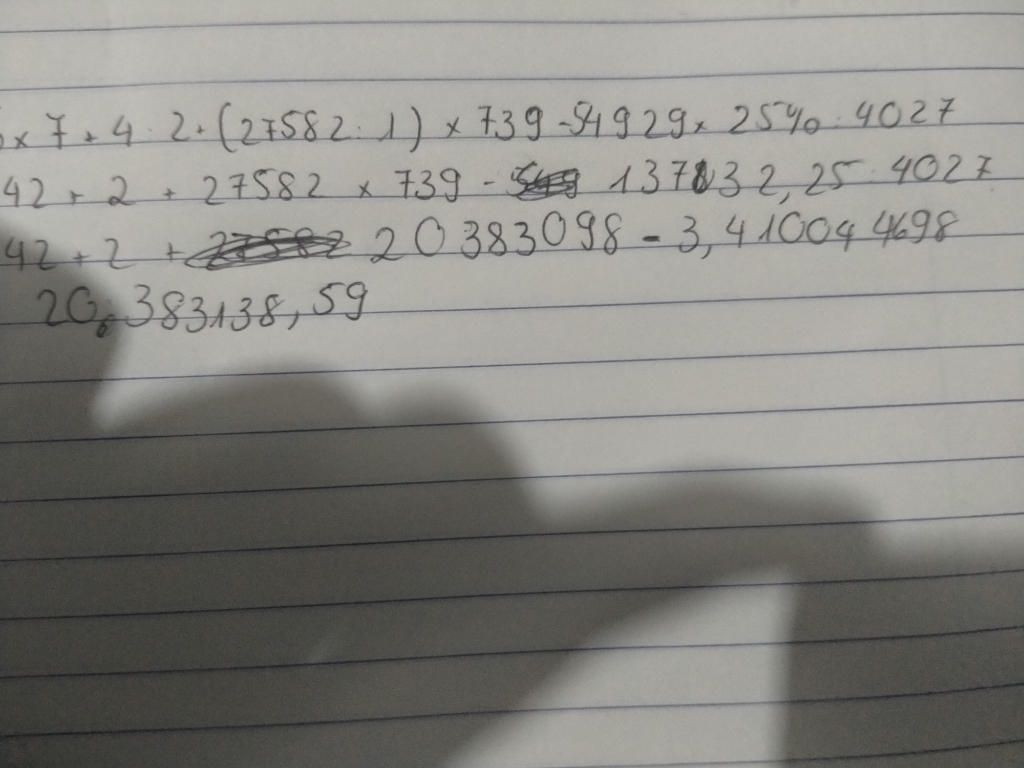 x 7 + 4 : 2 + (27582 : 1) x 739 - 54929 x 25% : 4027
42 + 2 + 27582 x 739 - 13732,25 : 4027
42 + 2 + 20383098 - 3,410044698
20.383138,59